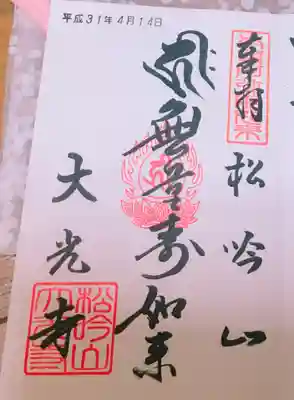 平成31年4月14日
奉拝
松吟山
無量寿如来
大光寺
松吟山